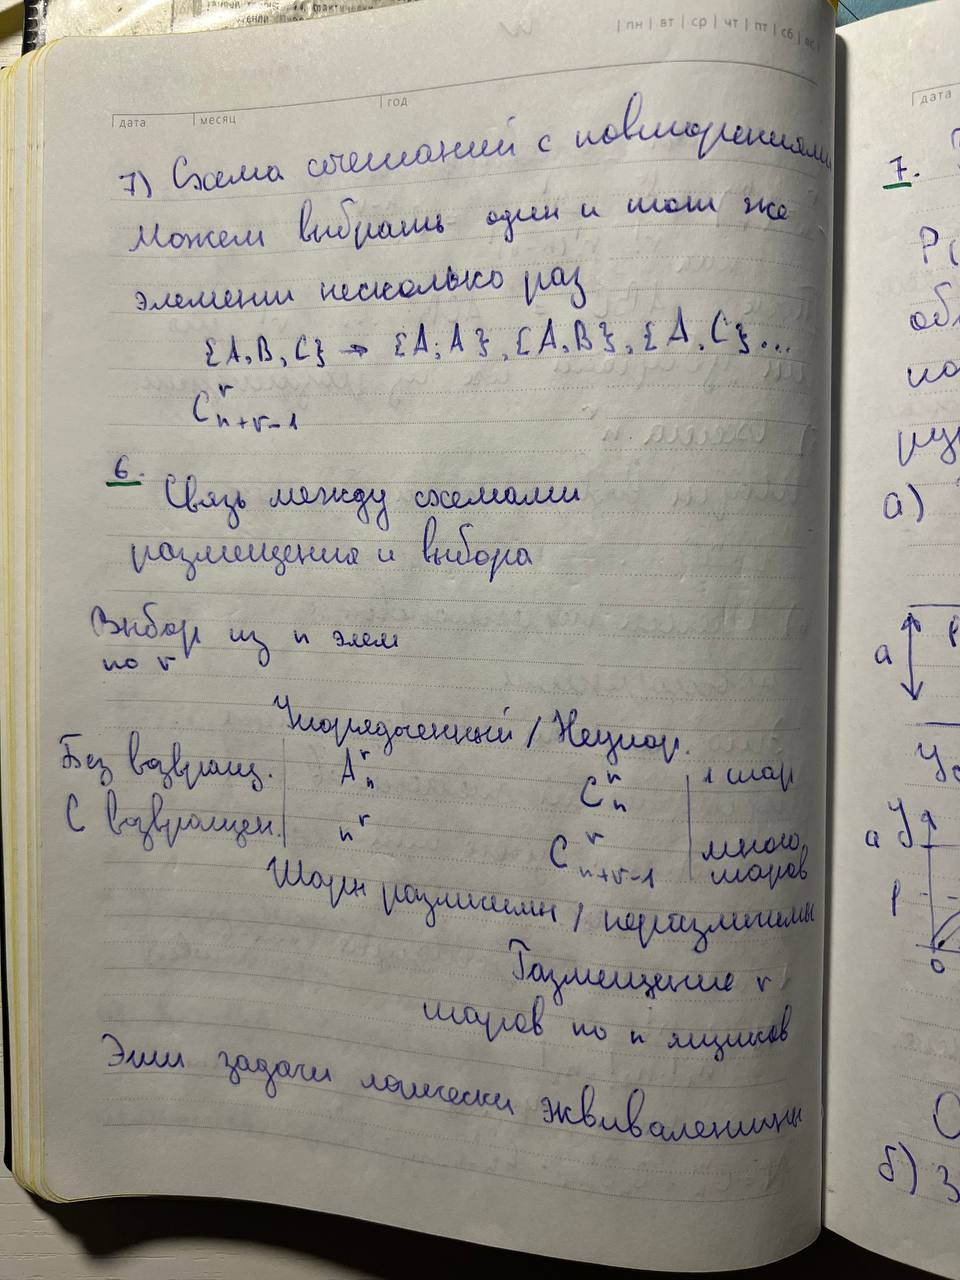 пн | вт | ср | чт | пт | сб | вс
дата месяц год
7) Схема сочетаний с повторениями
Можем выбрать один и тот же
элемент несколько раз
{A, B, C} → {A, A}, {A, B}, {A, C}...
C^r_{n+r-1}
6. Связь между схемами
размещения и выбора
Выбор из n элем
по r
Упорядоченный / Неупор.
Без возвращ. A^r_n C^r_n 1 шар
С возвращен. n^r C^r_{n+r-1} много
шаров
Шары различимы / неразличимы
Размещение r
шаров по n ящиков
Эти задачи логически эквивалентны
дата
7.
P(
а)
a
a
0
б) З